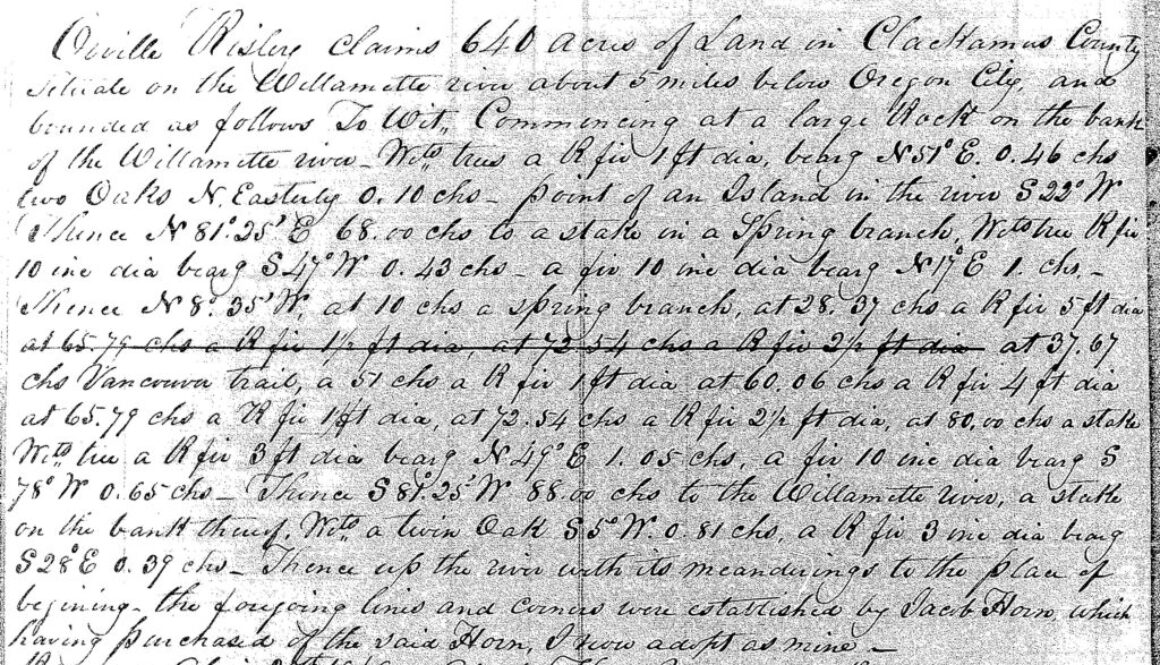 Orville Risley claims 640 acres of Land in Clackamus County
Situate on the Willamette river about 5 miles below Oregon City, and
bounded as follows To Wit,, Commencing at a large Rock on the bank
of the Willamette river – Wits trees a R fir 1 ft dia, bearg N 51° E. 0.46 chs
two Oaks N. Easterly 0.10 chs – point of an Island in the river S 22° W
Thence N 81° 25' E 68.00 chs to a stake in a Spring branch, Wits tree R fir
10 inc dia bearg S 47° W 0.43 chs – a fir 10 inc dia bearg N 17° E 1. chs –
Thence N 8° 35' W, at 10 chs a spring branch, at 28.37 chs a R fir 5 ft dia
at 65.79 chs a R fir 1½ ft dia, at 72.54 chs a R fir 2½ ft dia at 37.67
chs Vancouver trail, a 51 chs a R fir 1 ft dia at 60.06 chs a R fir 4 ft dia
at 65.79 chs a R fir 1½ ft dia, at 72.54 chs a R fir 2½ ft dia, at 80.00 chs a stake
Wits tree a R fir 3 ft dia bearg N 49° E 1.05 chs, a fir 10 inc dia bearg S
78° W 0.65 chs – Thence S 81° 25' W 88.00 chs to the Willamette river, a stake
on the bank thereof. Wits a twin Oak S 5° W. 0.81 chs, a R fir 3 inc dia bearg
S 28° E 0.39 chs – Thence up the river with its meanderings to the place of
begining – the foregoing lines and corners were established by Jacob Horn, which
having purchased of the said Horn, I now adopt as mine –